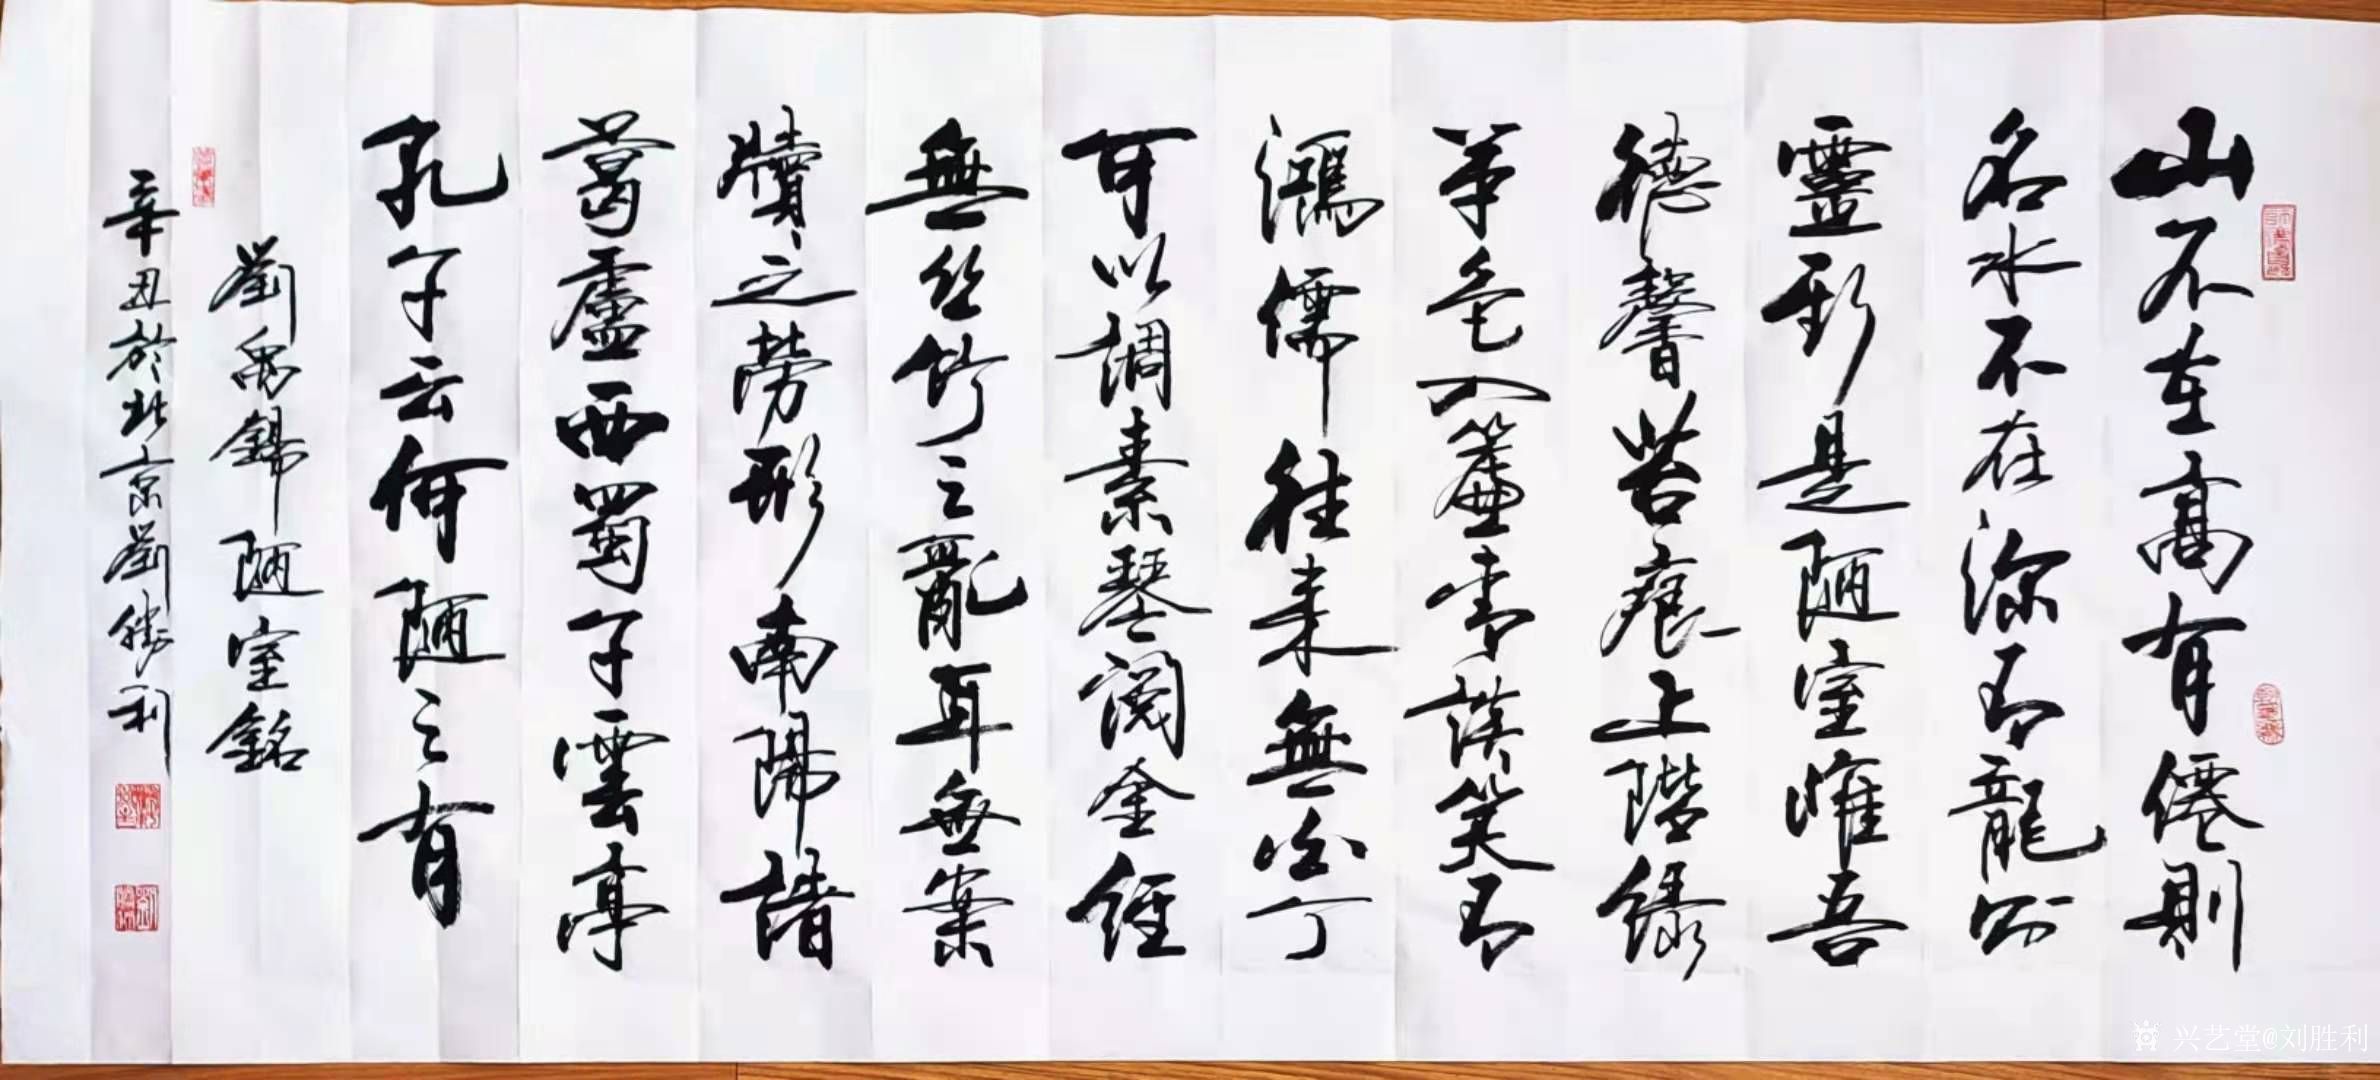 山不在高有僊則
名水不在深有龍則
靈斯是陋室惟吾
德馨苔痕上階綠
草色入簾青談笑有
鴻儒往來無白丁
可以調素琴閱金經
無丝竹之亂耳無案
牘之勞形南陽諸
葛廬西蜀子雲亭
孔子云何陋之有
劉禹錫陋室銘
辛丑於北京劉勝利
兴艺堂@刘胜利